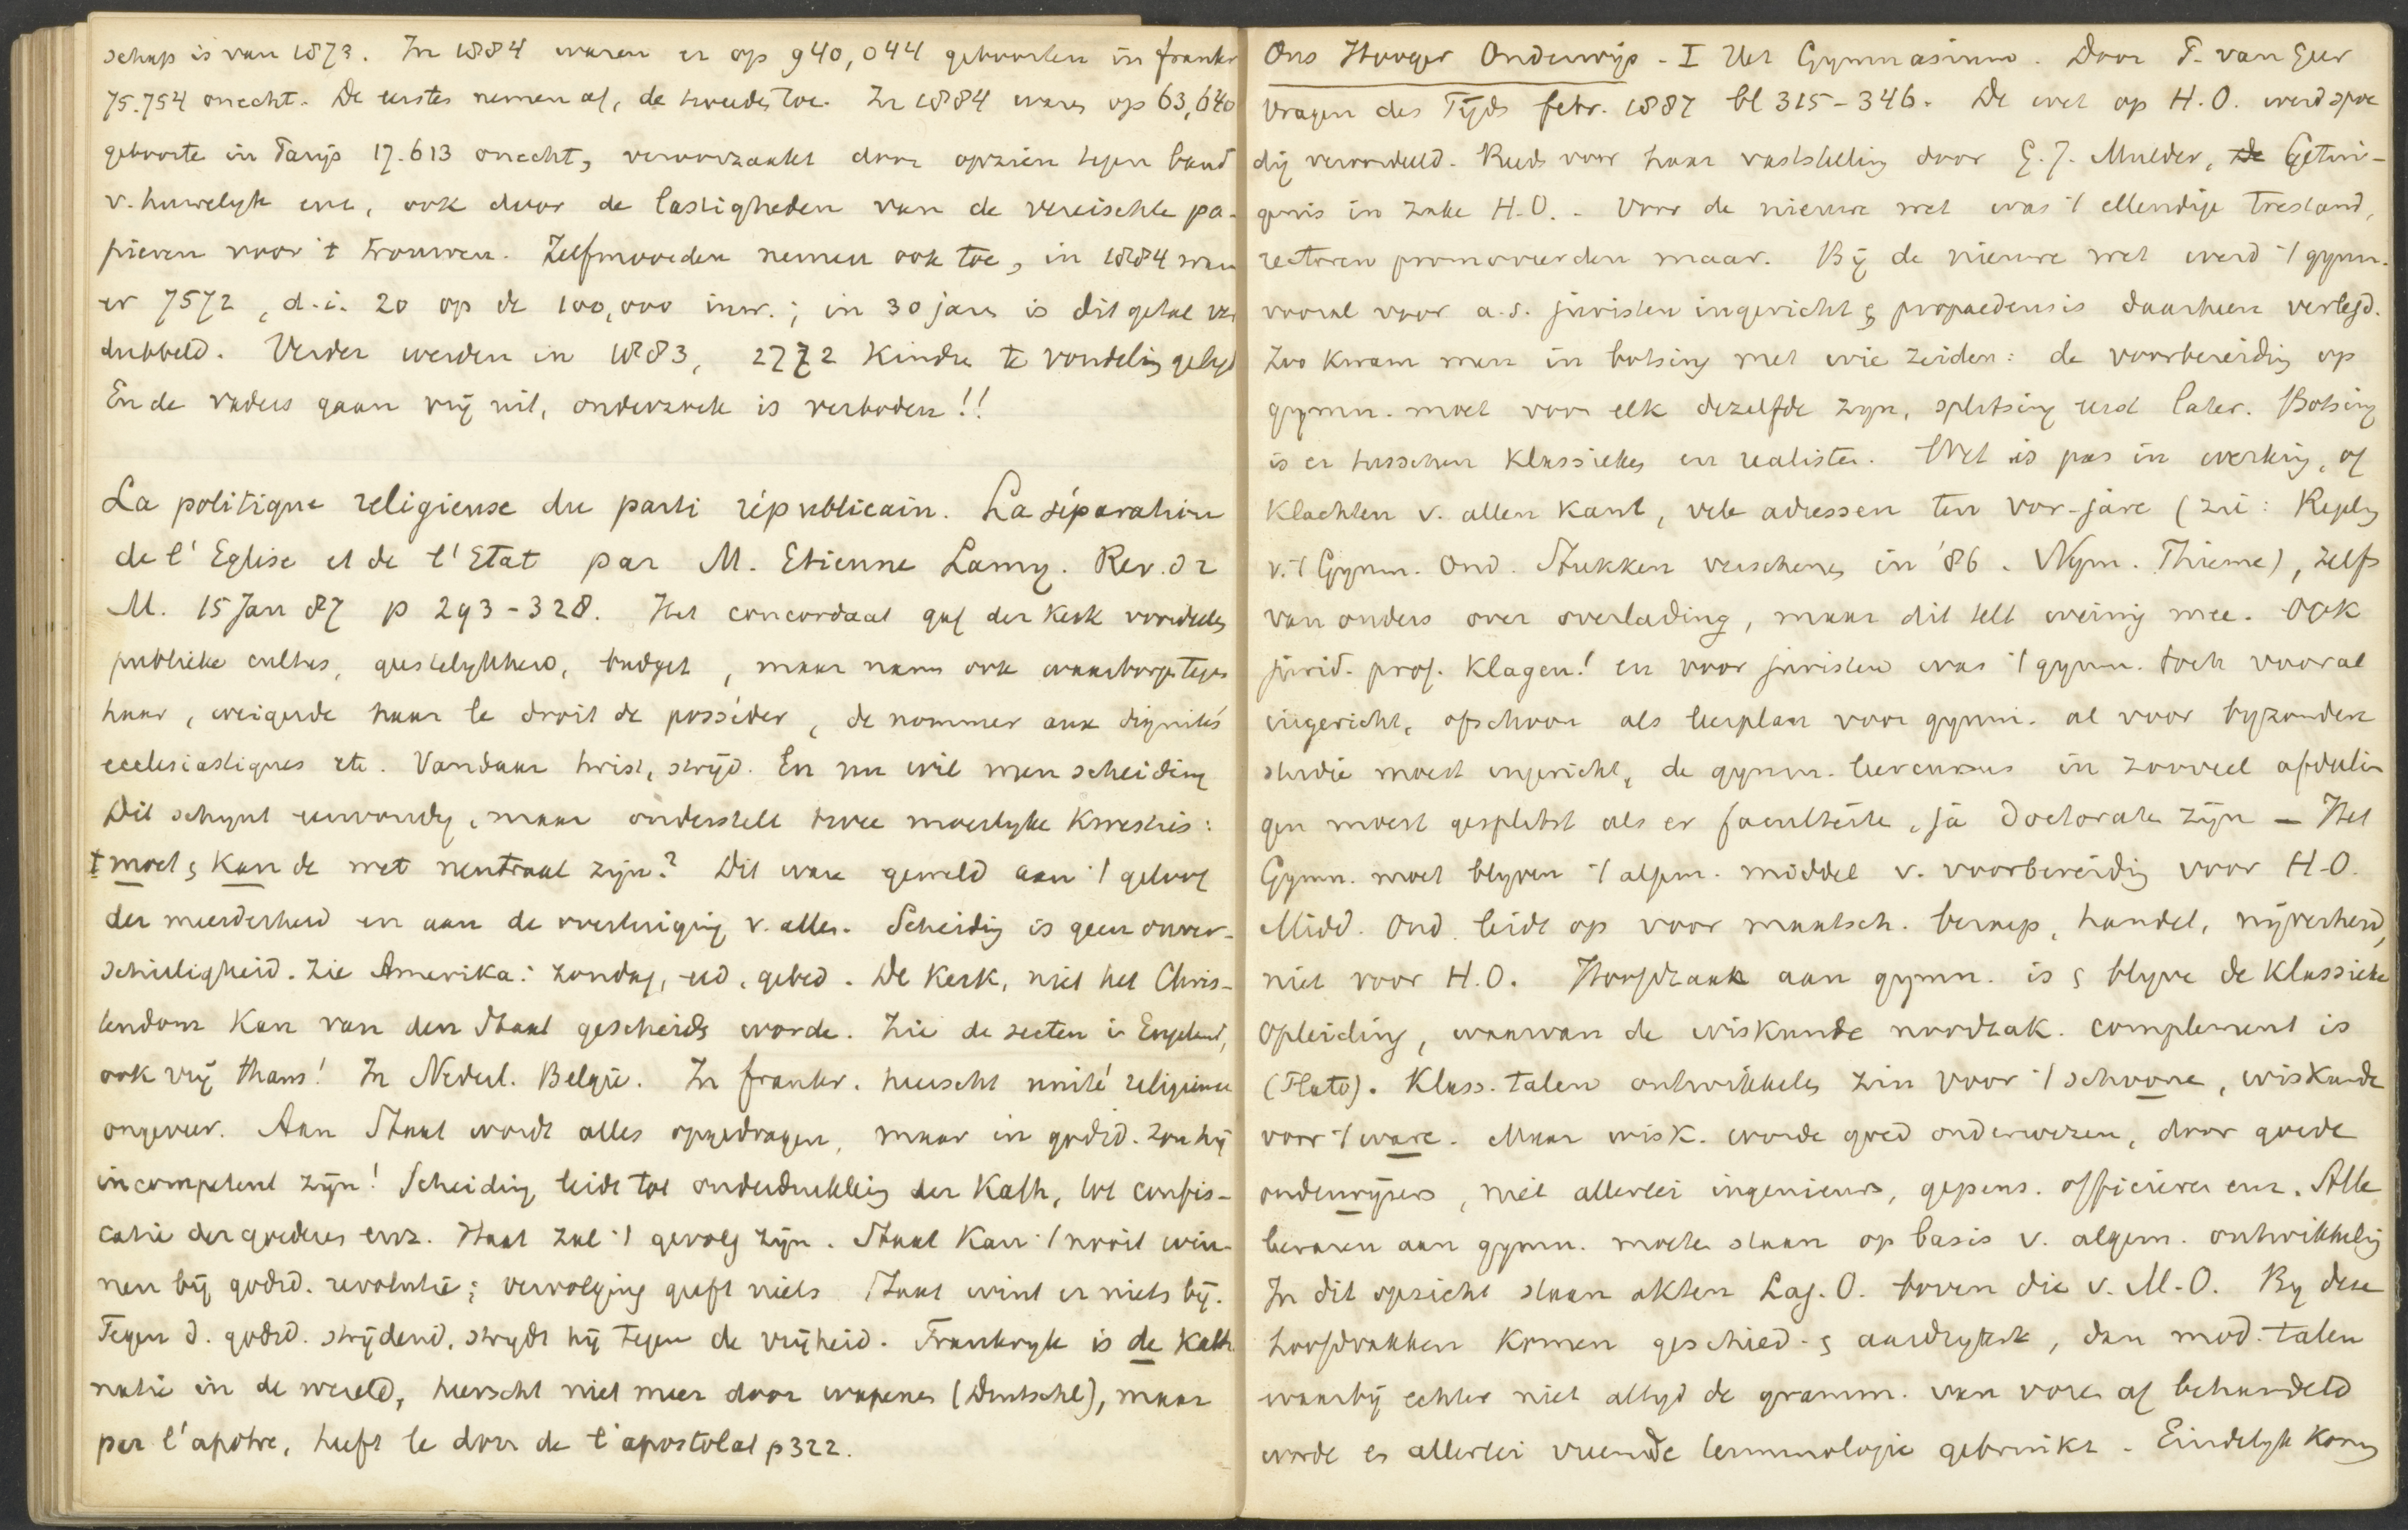 schap is van 1873. In 1884 waren er op 940,044 geboorten in Frankr
75.754 onecht. De eerste nemen af, de tweede toe. In 1884 waren op 63,640
geboorte in Parijs 17.613 onecht, veroorzaakt door opzien tegen band
v. huwelyk enz, ook door de lastigheden van de vereischte pa-
pieren voor 't trouwen. Zelfmoorden nemen ook toe, in 1884 waren
er 7572, d.i. 20 op de 100,000 inw.; in 30 jaar is dit getal ver
dubbeld. Verder werden in 1883, 2772 Kindre te vondeling gelegd
En de vaders gaan vrij uit, onderzoek is verboden!!
La politique religieuse du parti républicain. La séparation
de l'Eglise et de l'Etat par M. Etienne Lamy. Rev. d 2
M. 15 Jan 87 p 293-328. Het concordaat gaf der Kerk voordeelen
publieke cultus, geestelykheid, budget, maar nam ook waarborgen tegen
haar, weigerde haar le droit de posséder, de nommer aux dignités
ecclesiastiques etc. Vandaar twist, strijd. En nu wil men scheiding
Dit schynt eenvoudig, maar onderstelt twee moeilyke kwesties:
I moet & kan de wet neutraal zijn? Dit ware geweld aan 't geloof
der meerderheid en aan de overtuiging v. allen. Scheiding is geen onver-
schilligheid. Zie Amerika: zondag, eed, gebed. De Kerk, niet het Chris-
tendom kan van den Staat gescheiden worde. Zie de secten in Engeland,
ook vrij thans! In Nederl. Belgie. In Frankr. heerscht unité religieuse
ongeveer. Aan Staat wordt alles opgedragen, maar in godsd. zou hij
incompetent zijn! Scheiding leidt tot onderdrukking der Kath, tot confis-
catie der goederen enz. Haat zal 't gevolg zijn. Staat kan 't nooit win-
nen bij godsd. revolutie; vervolging geeft niets Staat wint er niets bij.
Tegen d. godsd. strijdend, strydt hij tegen de vrijheid. Frankryk is de Kath.
natie in de wereld, heerscht niet meer door wapenen (Duitschl), maar
par l'apotre, heeft le don de l'apostolat p 322.
Ons Hooger Onderwijs - I Het Gymnasium. Door P. van Geer
Vragen des Tijds febr. 1887 bl 315-346. De wet op H.O. werd spoe
dig veroordeeld. Reeds voor haar vaststelling door G.J. Mulder, De Getui-
genis in zake H.O. - Voor de nieuwe wet was 't ellendige toestand,
rectoren promoveerden maar. Bij de nieuwe wet werd 't gymn.
vooral voor a.s. juristen ingericht & propaedeusis daarheen verlegd.
Zoo kwam men in botsing met wie zeiden: de voorbereiding op
gymn. moet voor elk dezelfde zyn, splitsing eerst later. Botsing
is er tusschen Klassieken en realisten. Wet is pas in werking, of
Klachten v. allen kant, vele adressen ten vor-jare (zie: Regeling
v. 't Gymn. Ond. Stukken verschenen in '86. Nijm. Thieme), zelfs
van ouders over overlading, maar dit telt weinig mee. Ook
jurid. prof. klagen! en voor juristen was 't gymn. toch vooral
ingericht, ofschoon als leerplan voor gymn. al voor byzondere
studie moest ingericht, de gymn. leercursus in zooveel afdeelin
gen moest gesplitst als er faculteite, ja doctorate zijn - Het
Gymn. moet blyven 't algem. middel v. voorbereidig voor H.O.
Midd. Ond. leidt op voor maatsch. beroep, handel, nijverheid,
niet voor H.O. Hoofdzaak aan gymn. is & blyve de Klassieke
Opleiding, waarvan de wiskunde noodzak. complement is
(Plato). Klass. talen ontwikkelen zin voor 't schoone, wiskunde
voor 't ware. Maar wisk. worde goed onderwezen, door goede
onderwijzers, niet allerlei ingenieurs, gepens. officieren enz. Alle
leeraren aan gymn. moete staan op basis v. algem. ontwikkelig
In dit opzicht staan akten Lag. O. boven die v. M.O. By deze
hoofdvakken komen geschied. & aardrijksk, dan mod. talen
waarbij echter niet altyd de gramm. van vore af behandeld
worde en allerlei vreemde terminologie gebruikt. Eindelyk komen